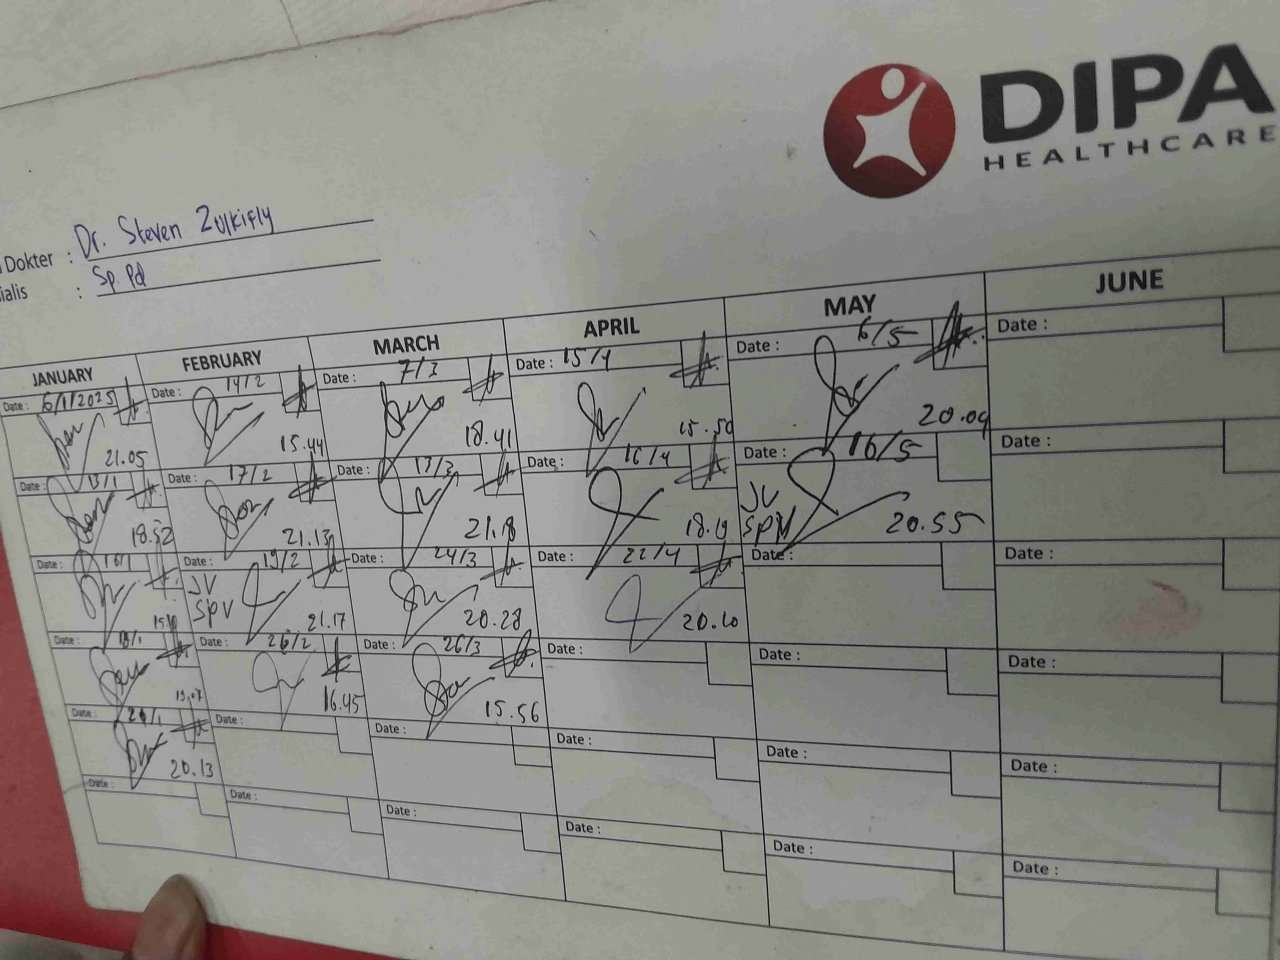 DIPA
HEALTHCARE
Dokter : Dr. Steven Zulkifly
ialis : Sp. Pd
JANUARY FEBRUARY MARCH APRIL MAY JUNE
Date : 6/1/2025 Date : 14/2 Date : 7/3 Date : 15/4 Date : 6/5 Date :
21.05 15.44 18.41 15.50 20.09
Date : 13/1 Date : 17/2 Date : 13/3 Date : 16/4 Date : 16/5 Date :
18.52 21.13 21.18 18.19 JV SPV 20.55
Date : 16/1 Date : 19/2 Date : 24/3 Date : 22/4 Date : Date :
JV SPV 21.17 20.28 20.20
Date : Date : 26/2 Date : 26/3 Date : Date : Date :
19.07 16.45 15.56
Date : Date : Date : Date : Date : Date :
20.13
Date : Date : Date : Date : Date : Date :